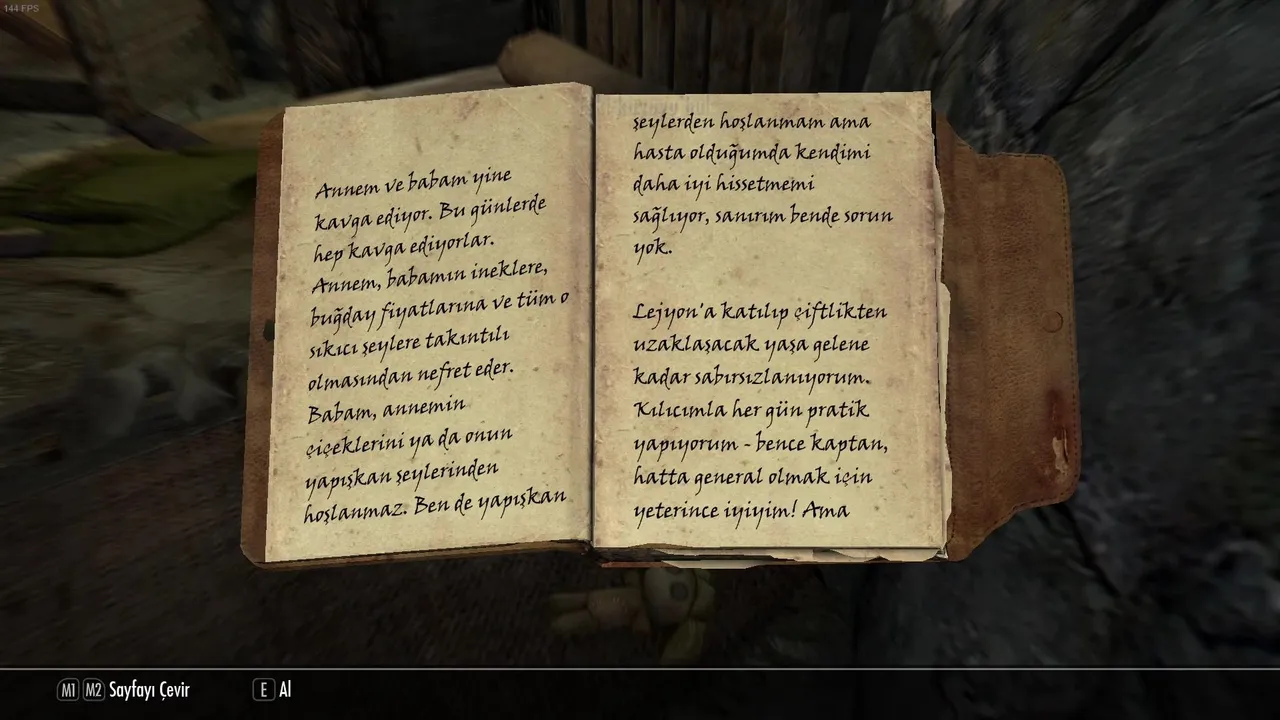 144 FPS
Annem ve babam yine
kavga ediyor. Bu günlerde
hep kavga ediyorlar.
Annem, babamın ineklere,
buğday fiyatlarına ve tüm o
sıkıcı şeylere takıntılı
olmasından nefret eder.
Babam, annemin
çiçeklerini ya da onun
yapışkan şeylerinden
hoşlanmaz. Ben de yapışkan
şeylerden hoşlanmam ama
hasta olduğumda kendimi
daha iyi hissetmemi
sağlıyor, sanırım bende sorun
yok.
Lejyon'a katılıp çiftlikten
uzaklaşacak yaşa gelene
kadar sabırsızlanıyorum.
Kılıcımla her gün pratik
yapıyorum - bence kaptan,
hatta general olmak için
yeterince iyiyim! Ama
M1 M2 Sayfayı Çevir
E Al